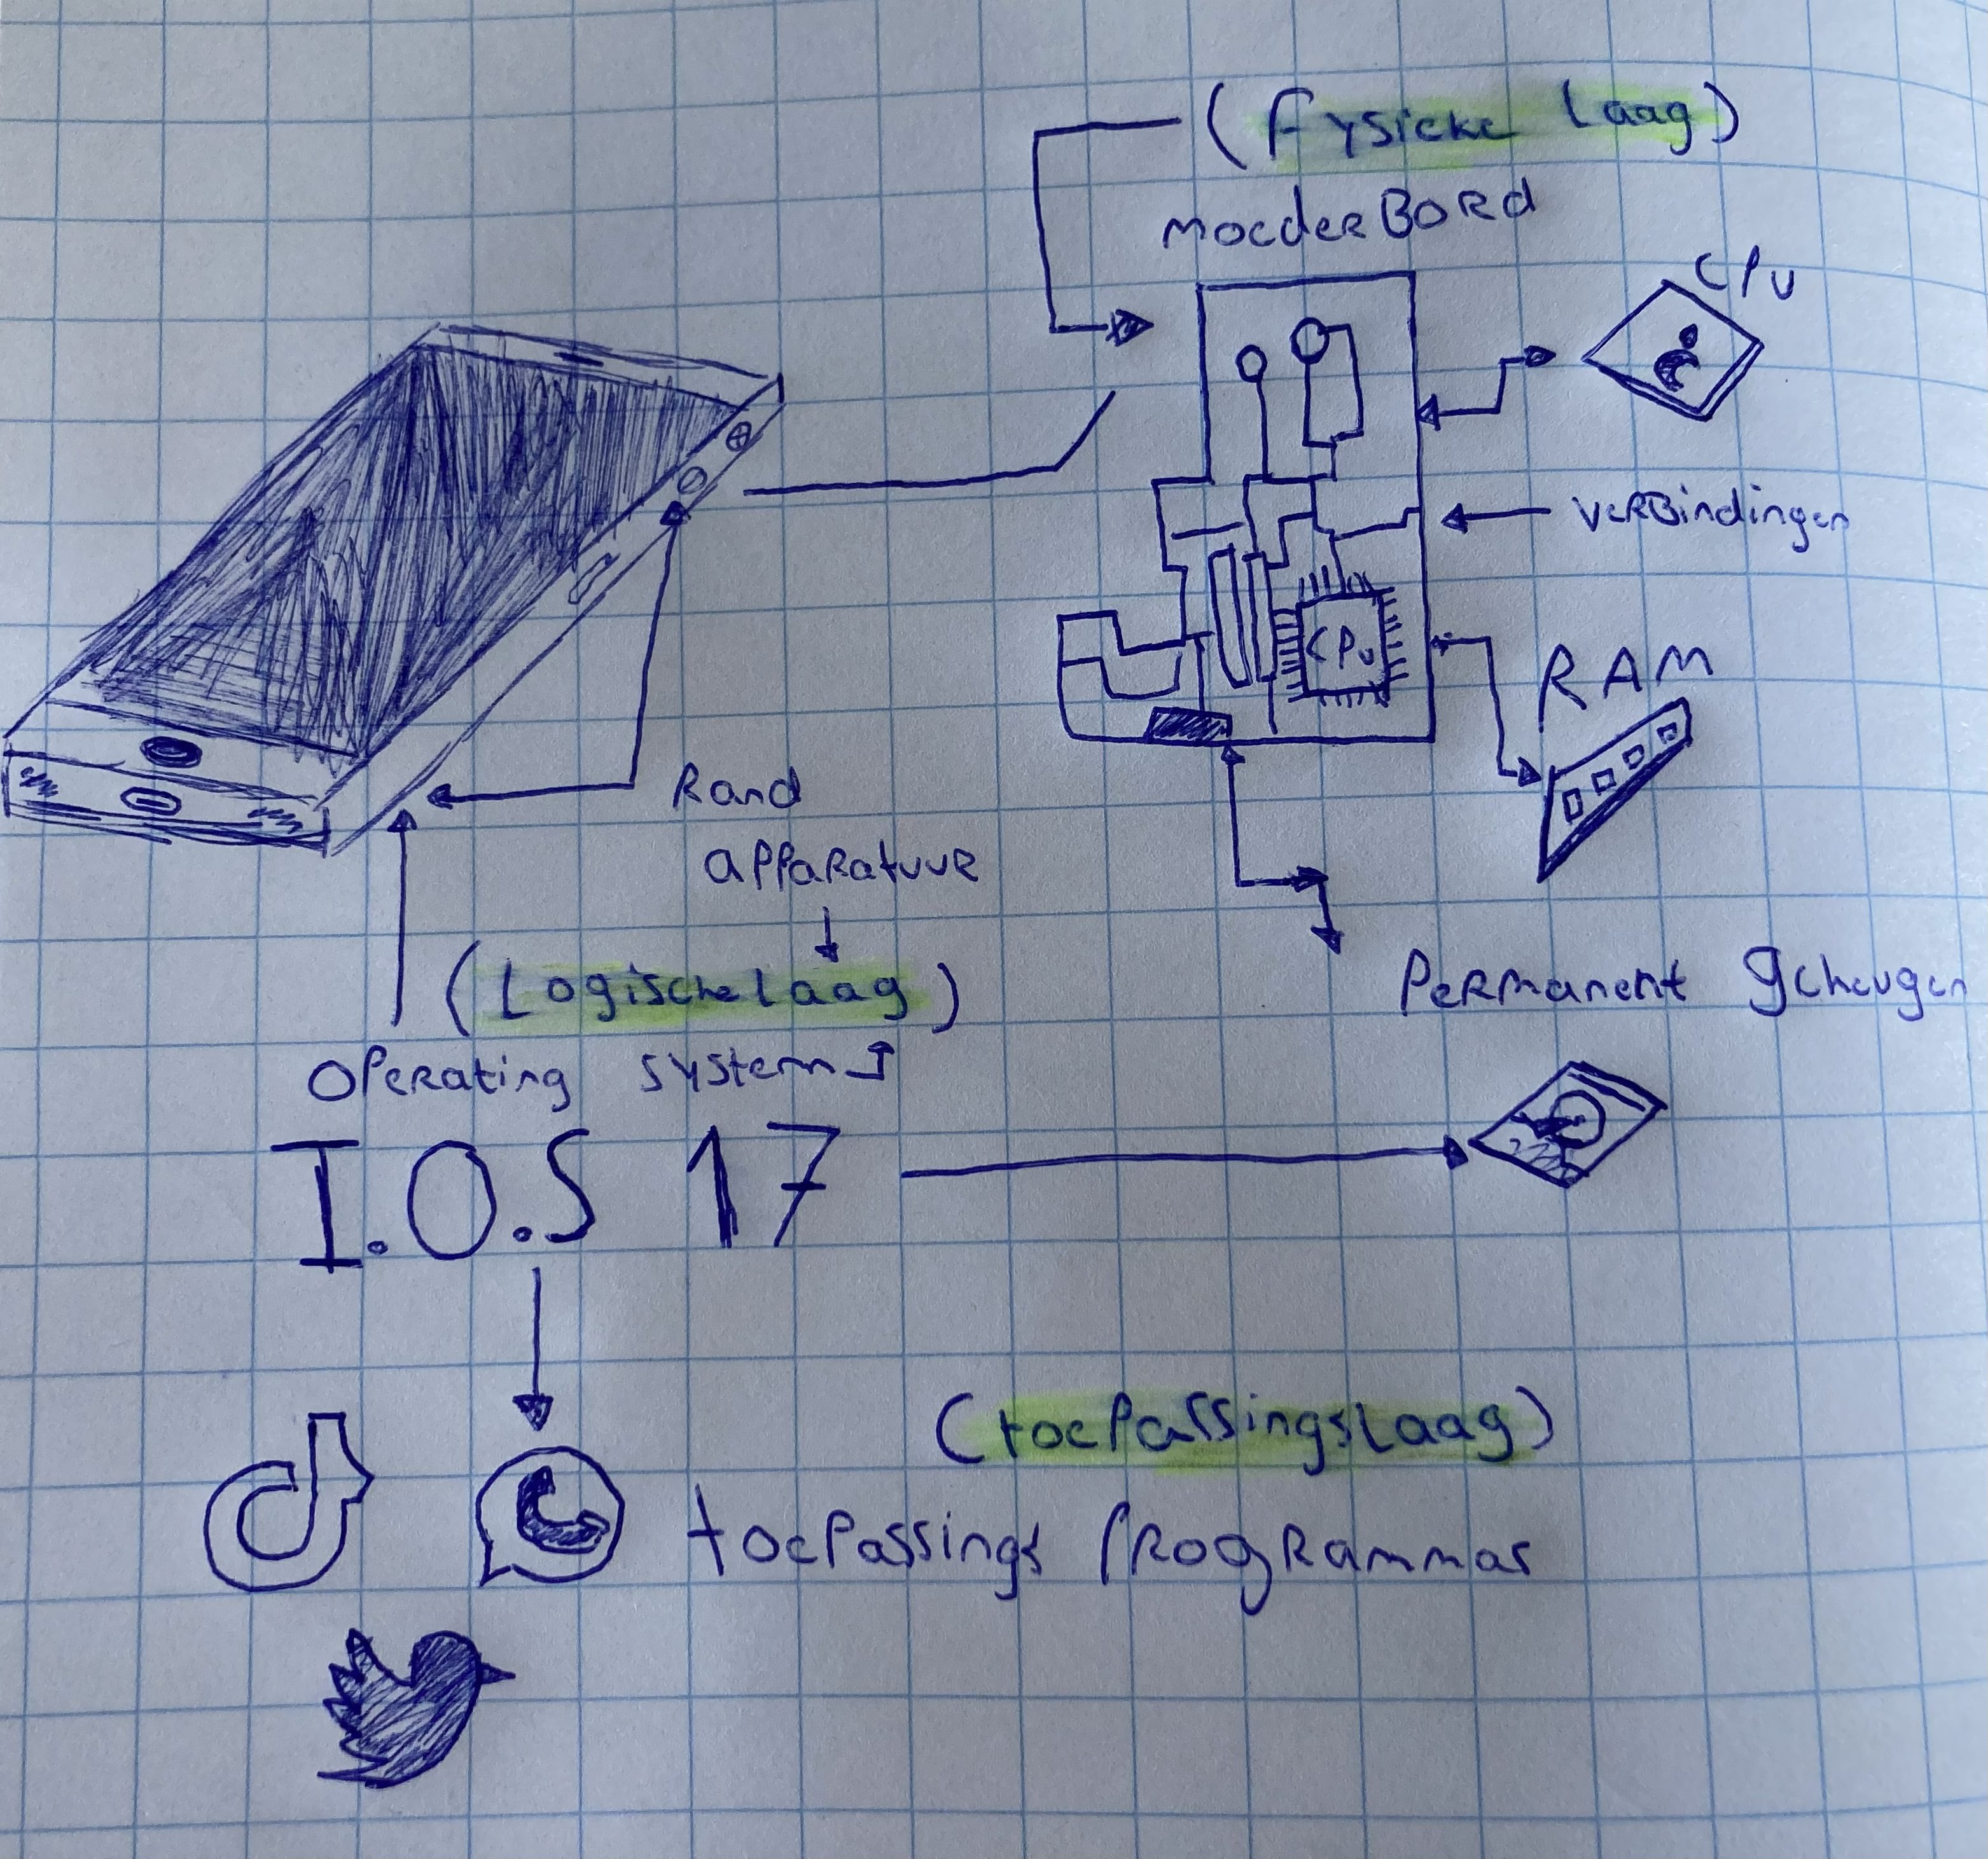 (Fysieke laag)
moederBord
CPU
verBindingen
CPU
RAM
Rand
apparatuur
(Logische laag)
Permanent geheugen
operating system
I.O.S 17
(toepassingslaag)
toepassings programmas